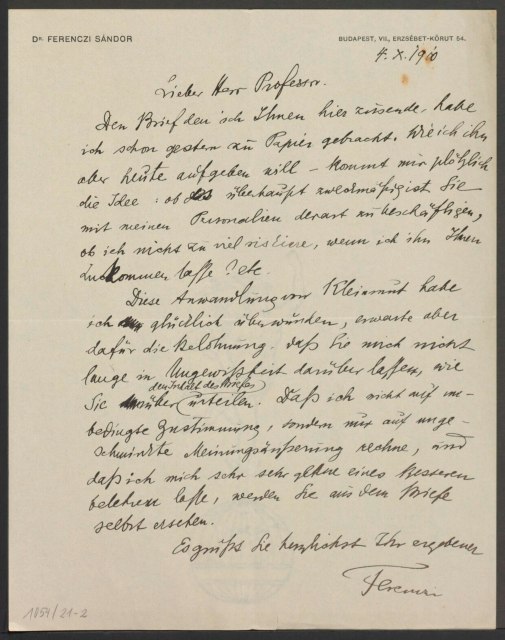 Dr. FERENCZI SÁNDOR
BUDAPEST, VII., ERZSÉBET-KÖRUT 54.
4. X. 1910
Lieber Herr Professor.
Den Brief den ich Ihnen hier zusende, habe
ich schon gestern zu Papier gebracht. Wie ich ihn
aber heute aufgeben will – kommt mir plötzlich
die Idee: ob es überhaupt zweckmäßig ist Sie
mit meinen Personalien derart zu beschäftigen,
ob ich nicht zu viel risciere, wenn ich ihn Ihnen
zukommen lasse? etc.
Diese Anwandlung von Kleinmut habe
ich glücklich überwunden, erwarte aber
dafür die Belohnung, daß Sie mich nicht
lange in Ungewißheit darüber lassen, wie
Sie über (den Inhalt des Briefes) urteilen. Daß ich nicht auf un-
bedingte Zustimmung, sondern nur auf unge-
schminkte Meinungsäußerung rechne, und
daß ich mich sehr sehr gerne eines Besseren
belehren lasse, werden Sie aus dem Briefe
selbst ersehen.
Es grüßt Sie herzlichst Ihr ergebener
Ferenczi
1054/21-2